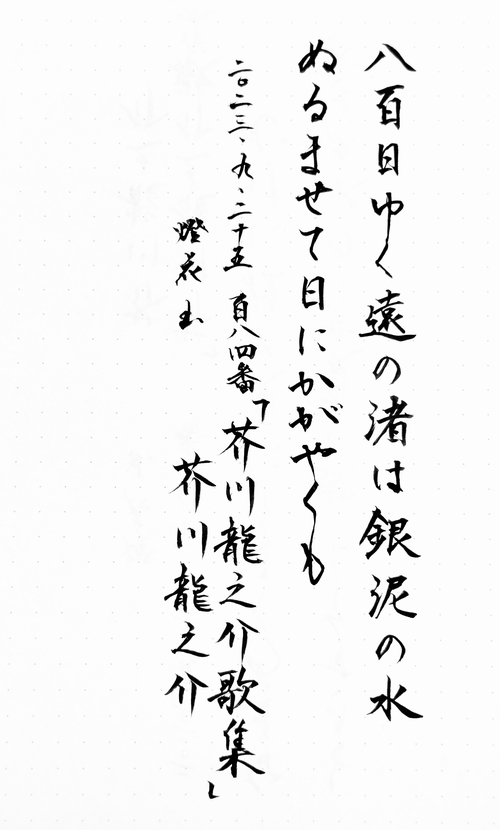 八百日ゆく遠の渚は銀泥の水
ぬるませて日にかがやくも
二〇二三、九、二十五 百八四番「芥川龍之介歌集」
燈花 芥川龍之介